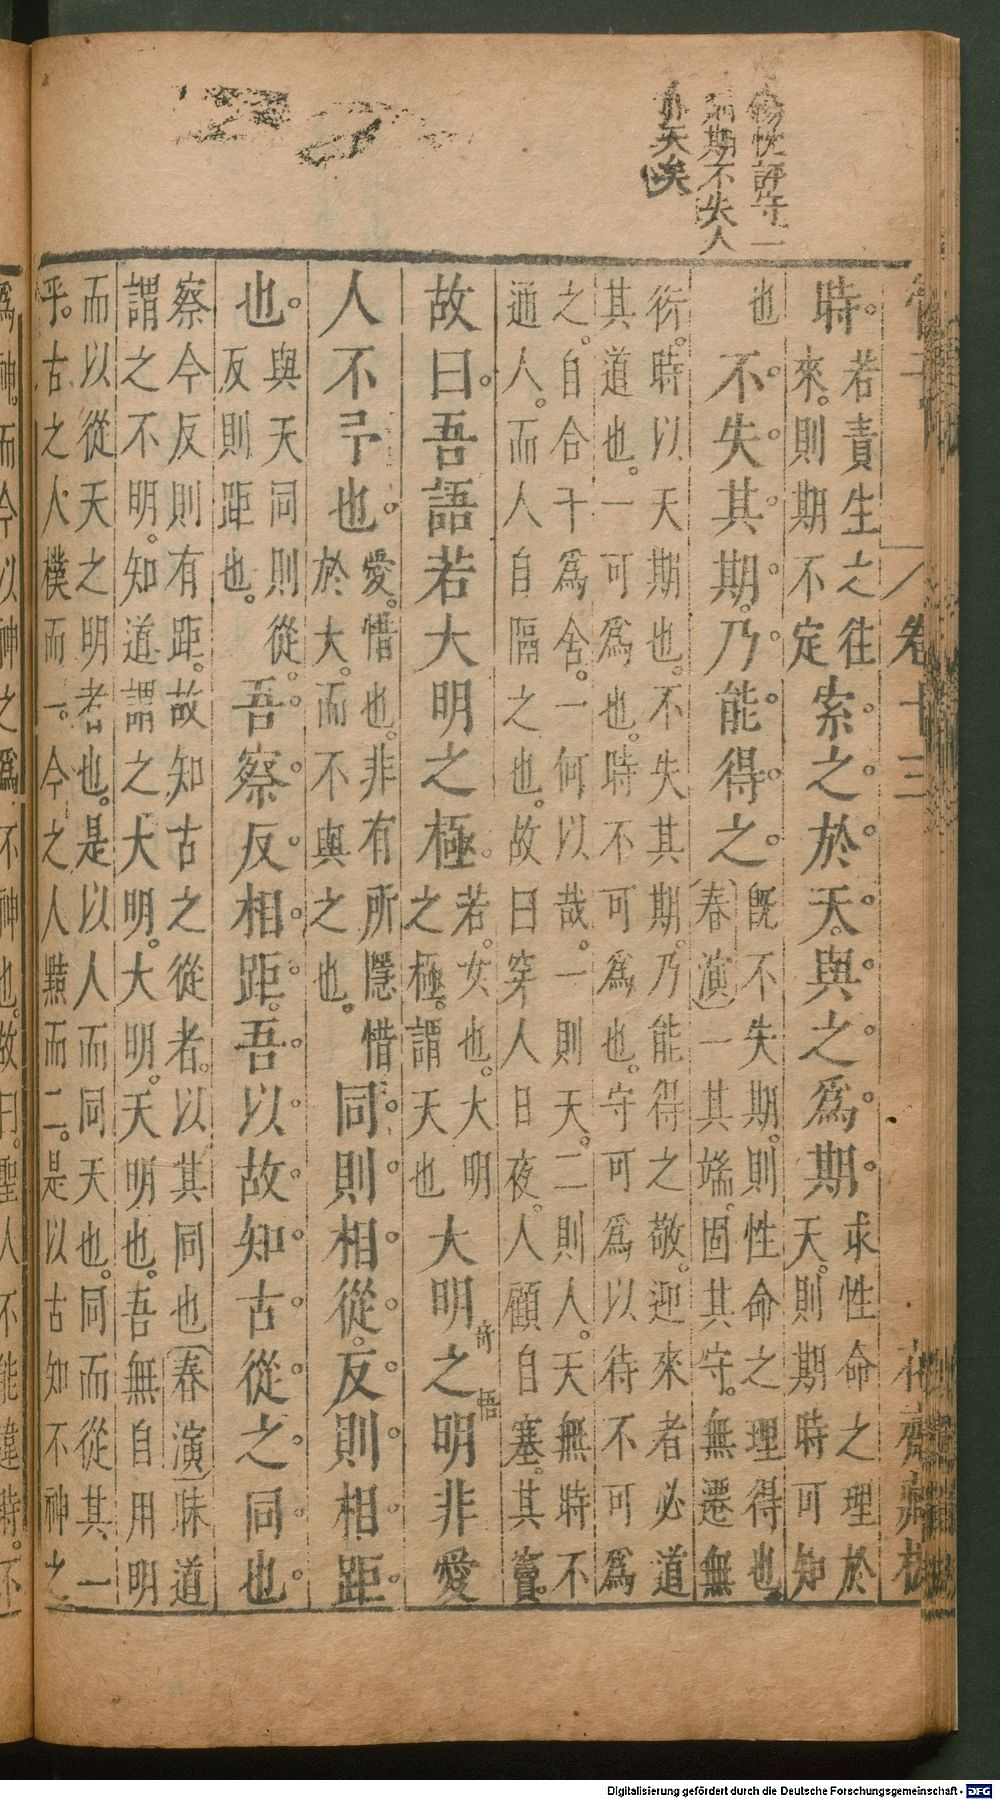 評守一
期不失人
卷十三
時。若責生之往來。則期不定索之於天。與之。為期。求性命之理於天。則期時可知
也不失其期。乃能得之。既不失期。則性命之理得也（春演）一其端。固其守。無遷無
衍。時以天期也。不失其期。乃能得之敬。迎來者必道
其道也。一可為也。時不可為也。守可為以待不可為
之。自合干為舍。一何以哉。一則天。二則人。天無時不
通人。而人自隔之也。故曰穿人日夜。人顧自塞。其竇。
故曰。吾語若大明之極。若。女也。大明之極。謂天也大明之明非愛
人不予也。愛。惜也。非有所隱惜於大。而不與之也。同則相從。反則相距。
也。與天同則從。反則距也。吾察反相距。吾以故知古從之同也
察今反則有距。故知古之從者。以其同也（春演）昧道
謂之不明。知道謂之大明。大明。天明也。吾無自用明
而以從天之明者也。是以人而同天也。同而從其一
乎。古之人樸而一。今之人黠而二。是以古知不神之
為神。而今以神之為不神也。故曰。聖人不能違時。不
Digitalisierung gefördert durch die Deutsche Forschungsgemeinschaft - DFG